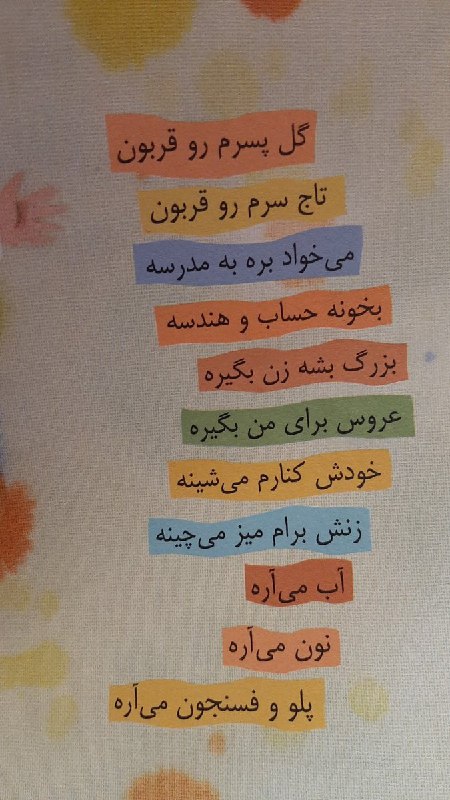 گل پسرم رو قربون
تاج سرم رو قربون
می‌خواد بره به مدرسه
بخونه حساب و هندسه
بزرگ بشه زن بگیره
عروس برای من بگیره
خودش کنارم می‌شینه
زنش برام میز می‌چینه
آب می‌آره
نون می‌آره
پلو و فسنجون می‌آره